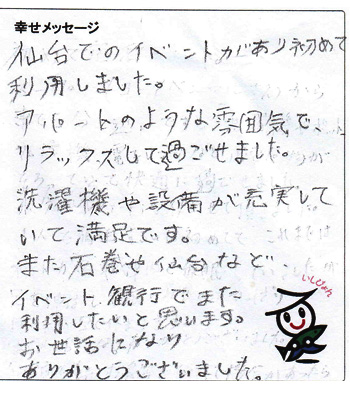 幸せメッセージ
仙台でのイベントがあり初めて
利用しました。
アパートのような雰囲気で、
リラックスして過ごせました。
洗濯機や設備が充実して
いて満足です。
また石巻や仙台など
イベント、観行でまた
利用したいと思います。
お世話になり
ありがとうございました。
いしぴょん